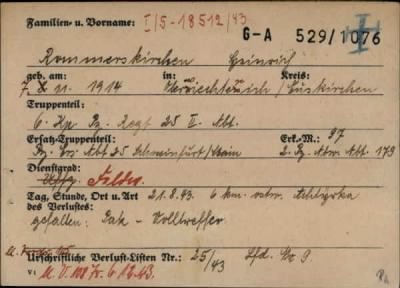 Familien- u. Vorname: I/5-18512/43
G-A 529/1076
Rommerskirchen Heinrich
geb. am: in: Kreis:
1914 / Euskirchen
Truppenteil:
6. Kp. Pz. Regt 25 II. Abt.
Ersatz-Truppenteil: Erk.-M.: 97
Pz. Ers. Abt 25 Schweinfurt/Main 2. Pz. Abw. Abt. 173
Dienstgrad:
Uffz. Feldw.
Tag, Stunde, Ort u. Art 21.8.43. 6 km. ostw. Achtyrka
des Verlustes:
gefallen: Pak - Volltreffer
Urschriftliche Verlust-Listen Nr.: 25/43 Lfd. No 9.
v: 6.12.43.